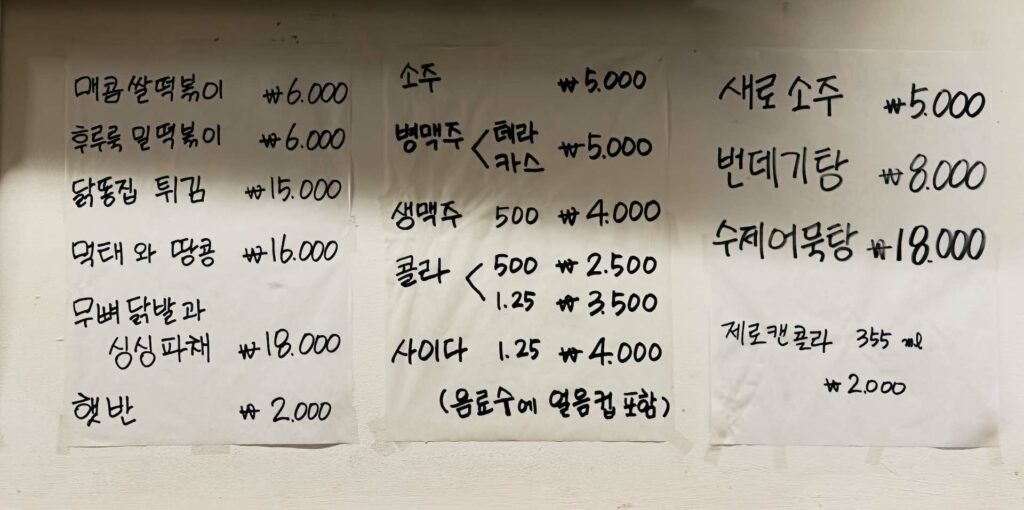 매콤쌀떡볶이 ₩6.000
후루룩 밀떡볶이 ₩6.000
닭똥집 튀김 ₩15.000
먹태와 땅콩 ₩16.000
무뼈닭발과
싱싱파채 ₩18.000
햇반 ₩2.000
소주 ₩5.000
병맥주 < 테라 ₩5.000
카스
생맥주 500 ₩4.000
콜라 < 500 ₩2.500
1.25 ₩3.500
사이다 1.25 ₩4.000
(음료수에 얼음컵 포함)
새로소주 ₩5.000
번데기탕 ₩8.000
수제어묵탕 ₩18.000
제로캔콜라 355 ml
₩2.000